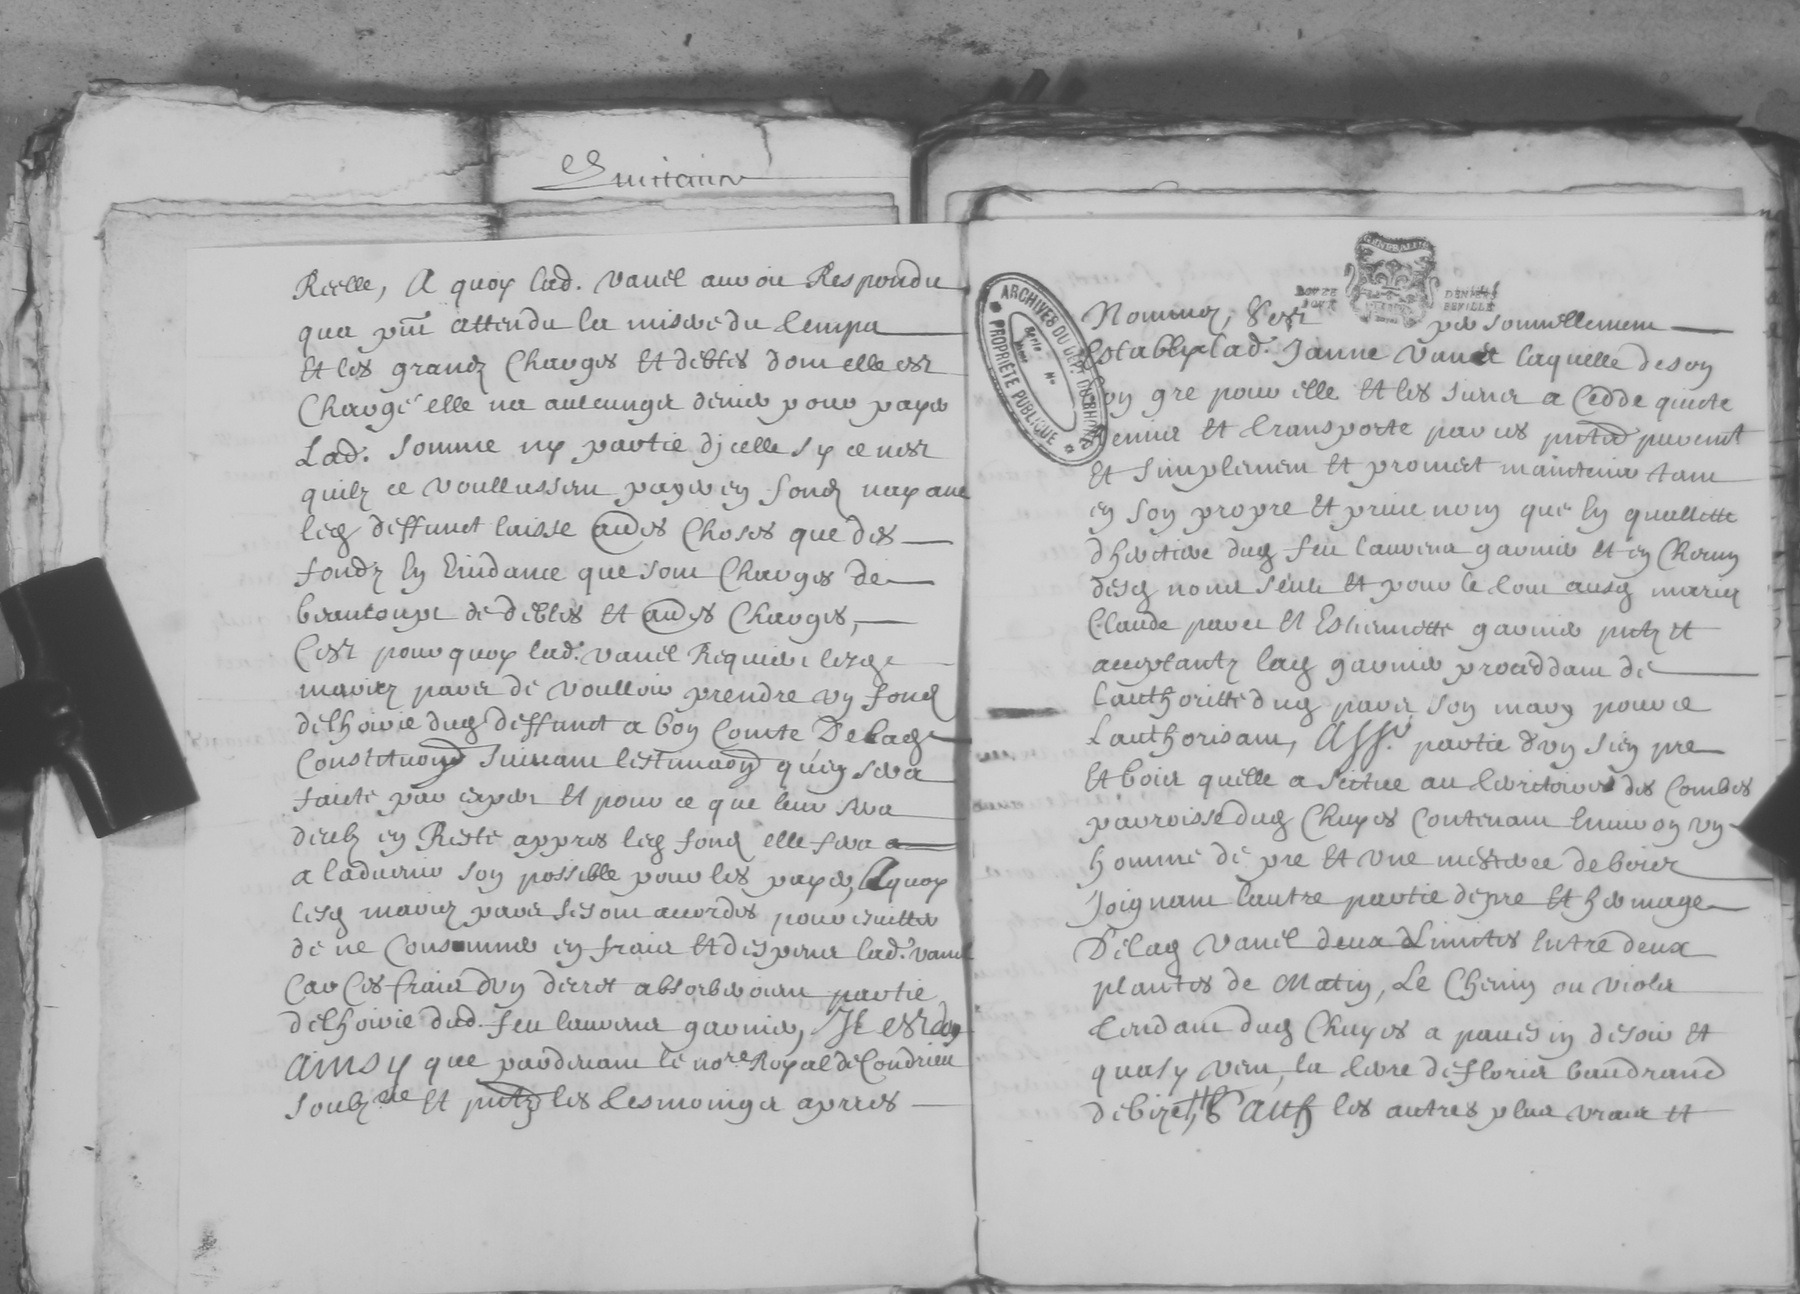 Quittance
Reelle, A quoy lad. vanel auroit Respondu
qua pnt attendu la misere du temps
Et les grandz Charges Et debtes dont elle est
Chargé elle na aulcungs denier pour payer
Lad. somme ny partie dicelle sy ce nest
quilz ce voullussent payer en fondz nayant
led deffunct laisse aues Choses que des
fondz En Eindance que sont Charges de
beaucoupt de debtes Et aues Charges,
Cest pourquoy lad. vanel Requier lesd
mariez paret de voulloir prendre un fondz
delhoirie dud deffunct a bon Comte De lad
Constituon suivant lestimaon quen sera
faicte par expers Et pour ce que leur sera
deub en Reste appres led fondz elle fera
a ladvenir son possible pour les payer, A quoy
lesd mariez paret se sont acordes pour esvitter
de ne Consommer en fraix Et despens lad. vanel
Car les fraix dun decret absorberoient partie
delhoirie dud. feu laurens garnier, Il est
Ainsy que pardevant le nore Royal de Condrieu
soubzne Et pntz les tesmoings apres
ARCHIVES DU DEPT. DU RHONE
PROPRIÉTÉ PUBLIQUE
GENERALITE
DENIERS
FEUILLE
Nommez, Sest personnellement
Establye lad. Janne vanel laquelle de son
bon gre pour elle Et les siens a Cedde quicte
Remis Et transporte par ces pntes purement
Et simplement Et promet maintenir tant
en son propre Et prive nom que En quallitté
dheritiere dud feu laurens garnier Et en Chacun
desd noms seule Et pour le tout ausd mariez
Claude paret Et Estiennette garnier pntz Et
acceptantz lad garnier proceddant de
Lauthoritté dud paret son mary pour ce
Lauthorisant, Assr partie dun sien pre
Et bois quelle a scitue au territoires des Combes
parroisse dud Chuyes Contenant Environ un
homme de pre Et une mesteree de bois
Joignant lautre partie de pre Et hermage
De lad vanel deux Limites Entre deux
plantes de Matin, Le Chemin ou viole
tendant dud Chuyes a pavesin de soir Et
quasy vent, la terre de floris baudrand
de bize, Sauf les autres plus vrais Et